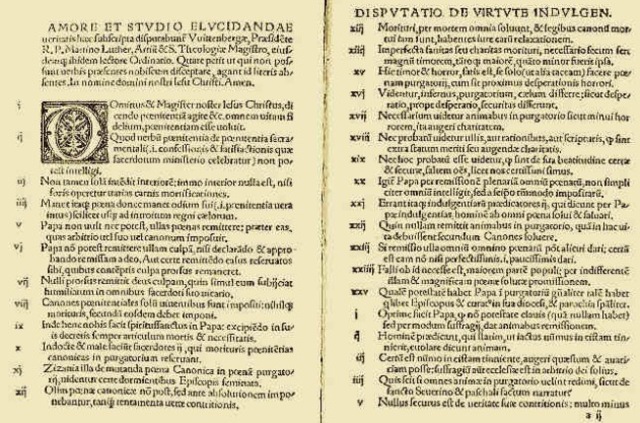 AMORE ET STVDIO ELVCIDANDAE
ueritatis hæc subscripta disputabunť Vuittenbergæ, Præsidéte
R. P. Martino Luther, Artiũ & S. Theologiæ Magistro, eius⸗
dem q̃ ibidem lectore Ordinario. Quare petit ut qui non pos⸗
sunt uerbis præsentes nobiscũ disceptare, agant id literis ab⸗
sentes. In nomine domini nostri Iesu Christi. Amen.
i
Ominus & Magister noster Iesus Christus, di
cendo pœnitentiã agite &c. omnem uitam fi
delium, pœnitentiam esse uoluit.
ij
Quod uerbũ pœnitentia de pœnitentia sacra⸗
mentali (i. confessionis & satisfactionis quæ
sacerdotum ministerio celebratur) non po⸗
test intelligi.
iij Non tamen solã intẽdit interiorẽ: immo interior nulla est, ni⸗
si foris operetur uarias carnis mortificationes.
iiij Manet itaq̃ pœna donec manet odium sui (.i. pœnitentia uera
intus) scilicet usq̃ ad introitum regni cælorum.
v Papa non uult nec potest, ullas pœnas remittere: præter eas,
quas arbitrio uel suo uel canonum imposuit.
vj Papa nõ potest remittere ullam culpã, nisi declarãdo & appro⸗
bando remissam a deo. Aut certe remittẽdo casus reseruatos
sibi, quibus contẽptis culpa prorsus remaneret.
vij Nulli prorsus remittit deus culpam, quin simul eum subijciat
humiliatum in omnibus sacerdoti suo uicario.
viij Canones pœnitentiales solũ uiuentibus sunt impositi: nihilq̃
morituris, secundũ eosdem debet imponi.
ix Inde bene nobis facit spiritussanctus in Papa: excipiẽdo in su⸗
is decretis semper articulum mortis & necessitatis.
x Indocte & male faciũt sacerdotes ij, qui morituris pœnitẽtias
canonicas in purgatorium reseruant.
xj Zizania illa de mutanda pœna Canonica in pœnã purgato⸗
rij, uidentur certe dormientibus Episcopis seminata.
xij Olim pœnæ canonicæ nõ post, sed ante absolutionem impo⸗
nebantur, tanq̃ tentamenta ueræ contritionis.
DISPVTATIO DE VIRTVTE INDVLGEN.
xiij Morituri, per mortem omnia soluunt, & legibus canonũ mor⸗
tui iam sunt, habentes iure earũ relaxationem.
xiiij Imperfecta sanitas seu charitas morituri, necessario secum fert
magnũ timorem, tãto q̃ maiorẽ, quãto minor fuerit ipsa.
xv Hic timor & horror, satis est, se solo (ut alia taceam) facere pœ⸗
nam purgatorij, cum sit proximus desperationis horrori.
xvj Videntur, infernus, purgatorium, cælum differre: sicut despe⸗
ratio, prope desperatio, securitas differunt.
xvij Necessarium uidetur animabus in purgatorio sicut minui hor⸗
rorem, ita augeri charitatem.
xviij Nec probatũ uidetur ullis, aut rationibus, aut scripturis, q̃ sint
extra statum meriti seu augendæ charitatis.
xix Nec hoc probatũ esse uidetur, q̃ sint de sua beatitudine certæ
& securæ, saltem oẽs, licet nos certissimi simus.
xx Igiť Papa per remissionẽ plenariã omniũ pœnarũ, non simpli
citer omniũ intelligit, sed a seipso tantũmodo impositarũ.
xxj Errant itaq̃ indulgentiarũ prædicatores ij, qui dicunt per Pa⸗
pæ indulgentias, hominẽ ab omni pœna solui & saluari.
xxij Quin nullam remittit animabus in purgatorio, quã in hac ui⸗
ta debuissent secundum Canones soluere.
xxiij Si remissio ulla omniũ omnino pœnarũ põt alicui dari; certũ
est eam nõ nisi perfectissimis .i. paucissimis dari.
xxiiij Falli ob id necesse est, maiorem partẽ populi: per indifferentẽ
illam & magnificam pœnæ solutæ promissionem.
xxv Qualẽ potestatẽ habet Papa ĩ purgatoriũ gñaliter talẽ habet
q̃libet Episcopus & Curat⁹ in sua diocesi, & parochia sp̃aliter.
i Optime facit Papa, q̃ nõ potestate clauis (quã nullam habet)
sed per modum suffragij, dat animabus remissionem.
ij Hominẽ prædicant, qui statim, ut iactus nũmus in cistam tin⸗
nierit, euolare dicunt animam.
iij Certũ est nũmo in cistam tinniente, augeri quæstum & auarici
am posse: suffragiũ aũt ecclesiæ est in arbitrio dei solius.
iiij Quis scit si omnes animæ in purgatorio uelint redimi, sicut de
sancto Seuerino & paschali factum narratur.
v Nullus securus est de ueritate suæ contritionis; multo minus
a ij